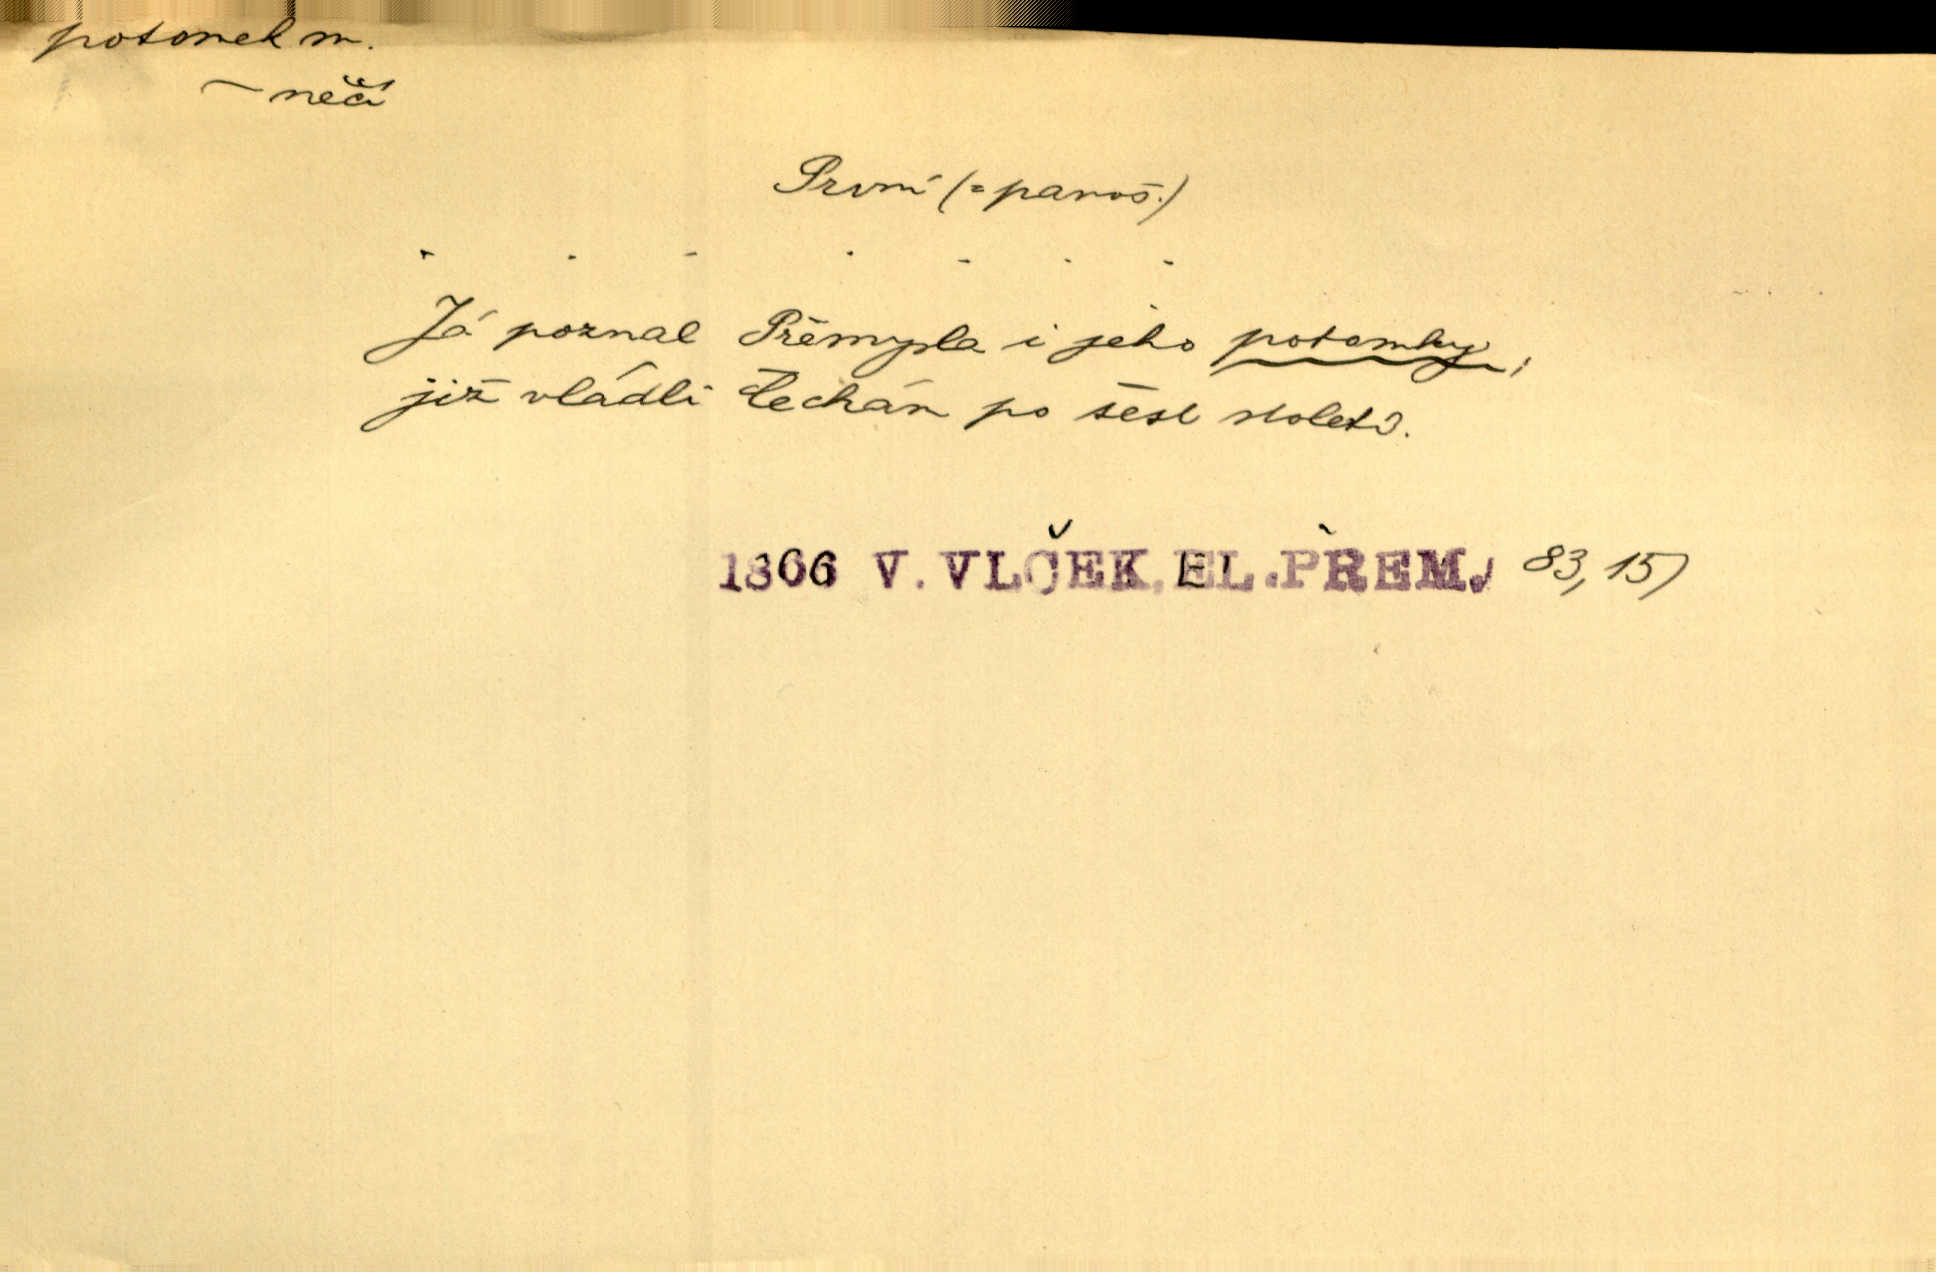 potomek m.
~ něčí
První (= panoš.)
. . . . . . .
Já poznal Přemysla i jeho potomky,
již vládli Čechám po šest století.
1866 V. VLČEK, EL. PŘEM. 83, 15)